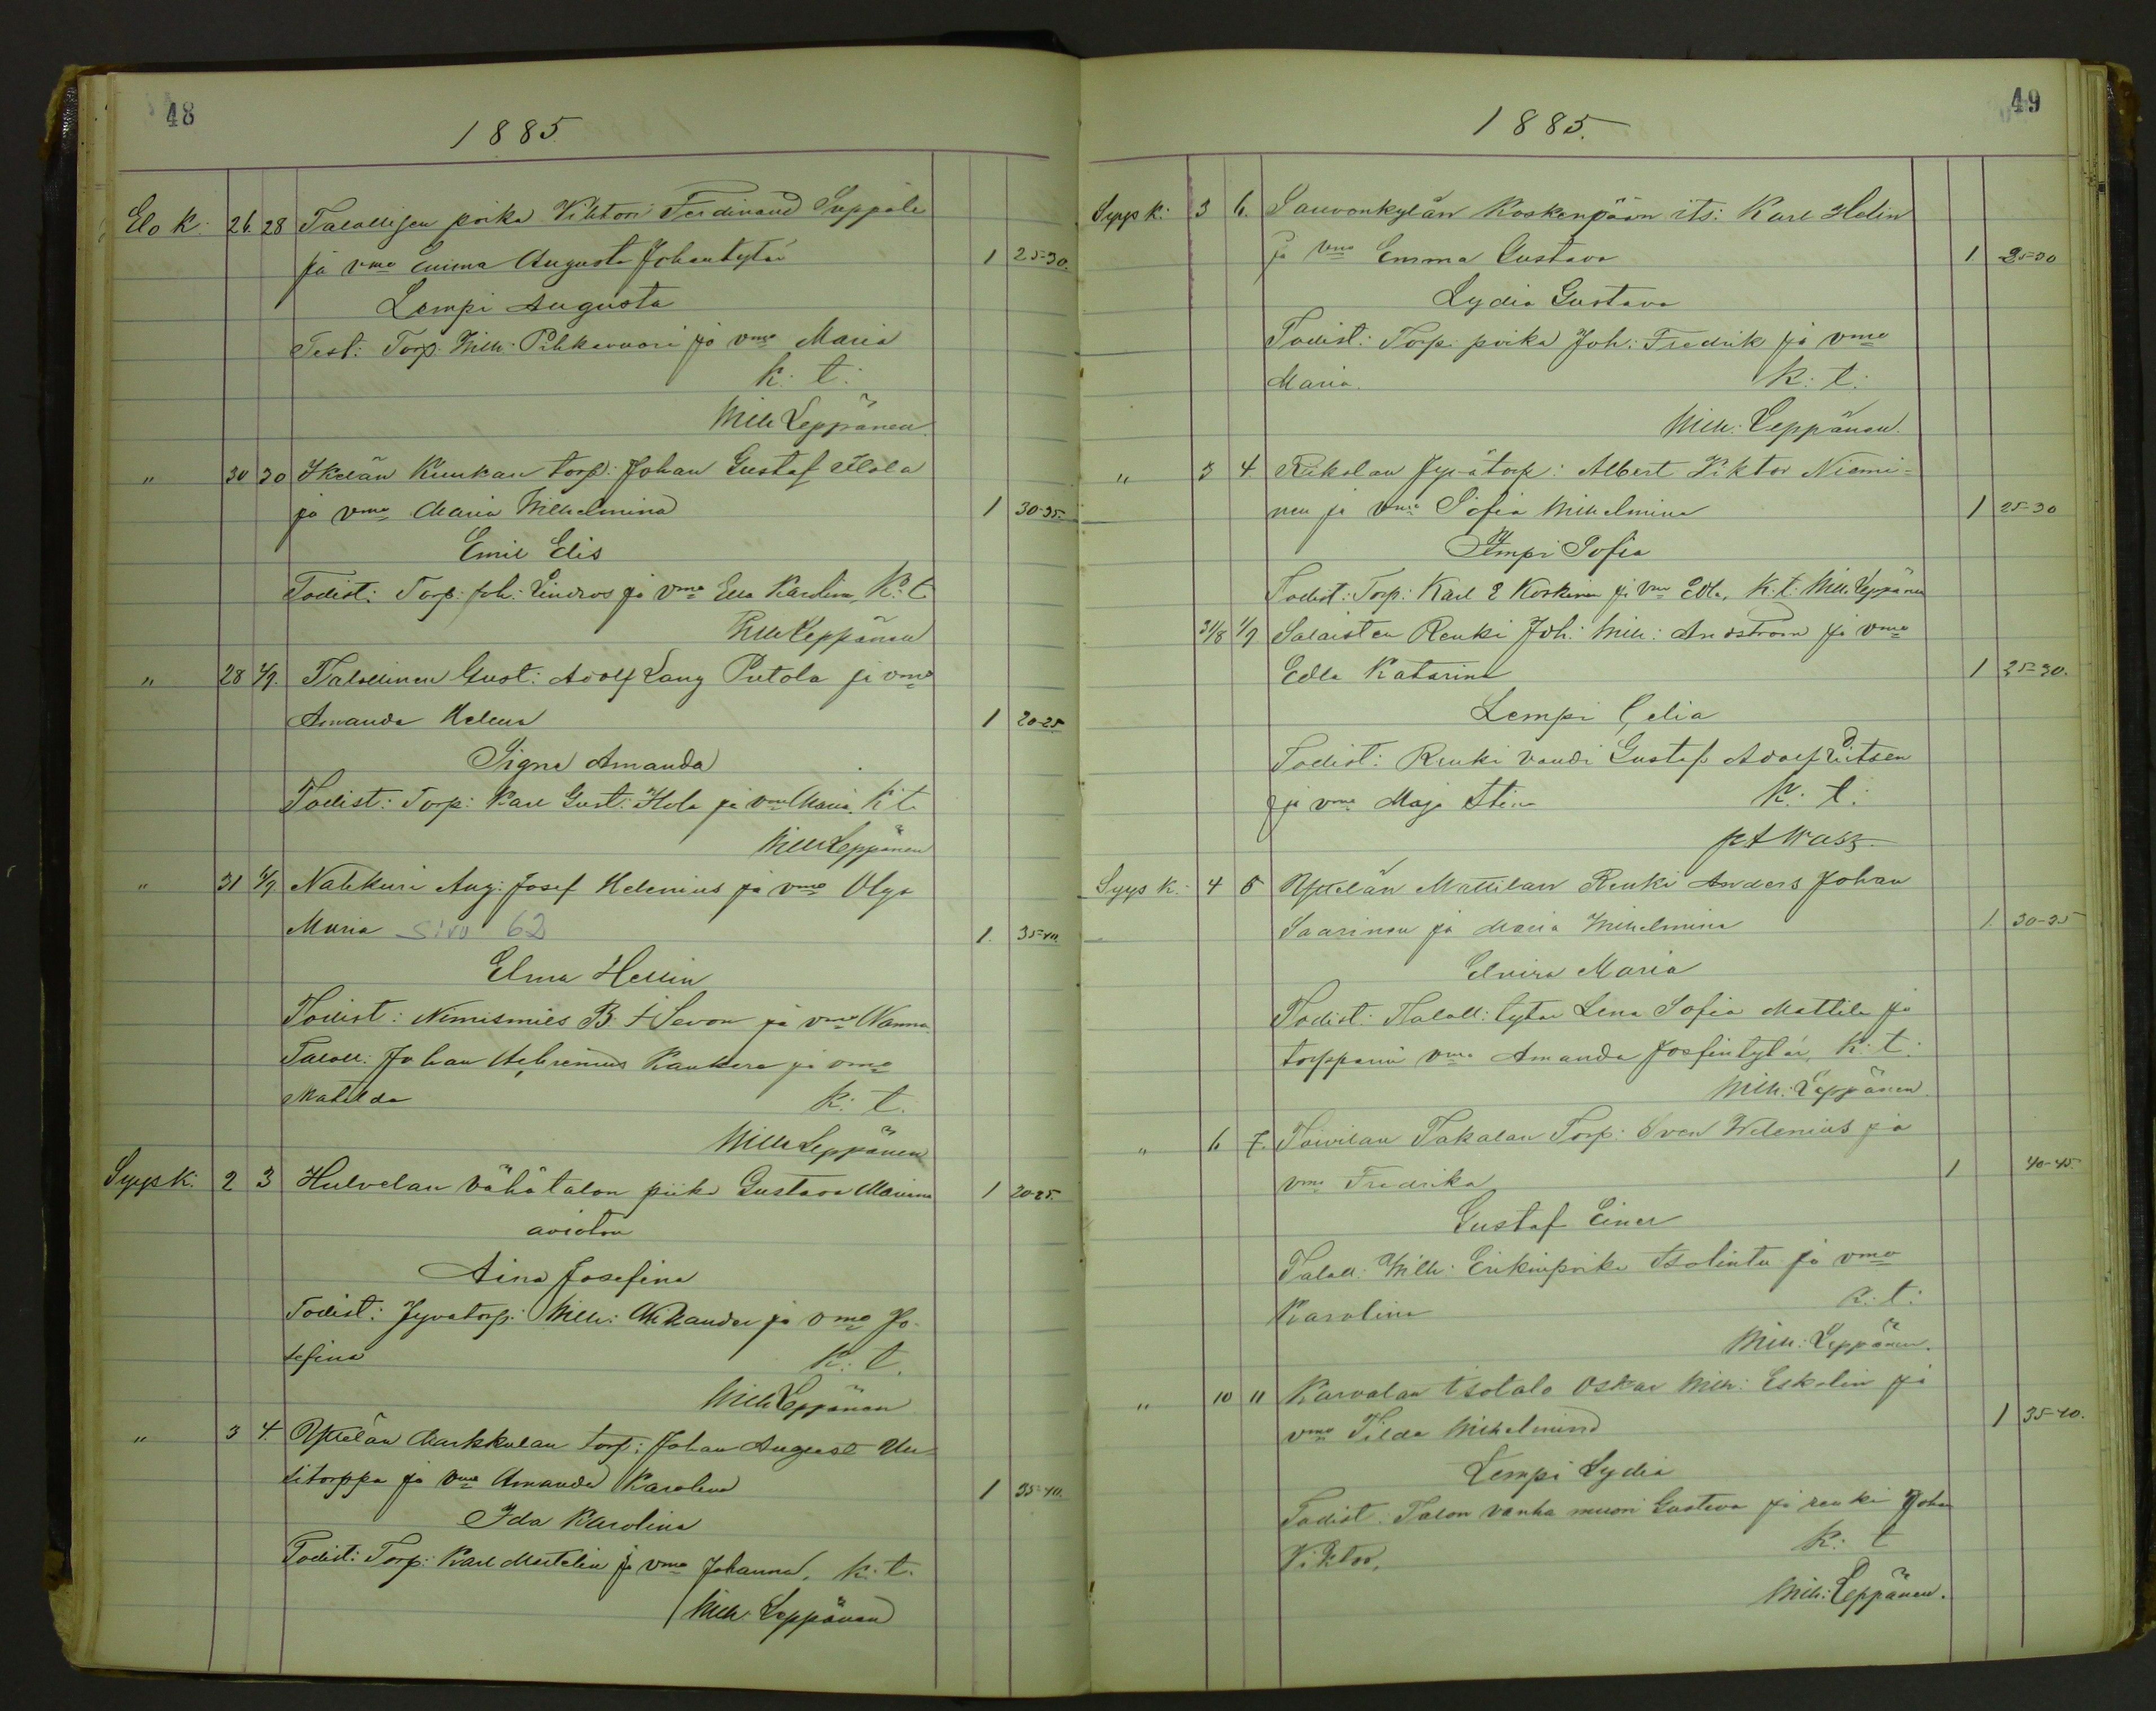 48
1885
Elo k. 26. 28 Talollisen poika Viktori Ferdinand Seppälä
ja vmo Emma Augusta Johantytär 1 25-30.
Lempi Augusta
Test: Torp. Wilh: Pihkavuori ja vmo Maria
k: t:
Wilh Leppänen
" 30 30 Kunkan torp: Johan Gustaf Ylola
ja vmo Maria Wilhelmina 1 30-35.
Emil Elis
Todist: Torp: Joh: Lindros ja vmo Eva Karolina, K: t.
Wilh Leppänen
" 28 1/9. Talollinen Gust: Adolf Lang Putola ja vmo
Amanda Helena 1 20-25
Signe Amanda
Todist: Torp: Karl Gust: Hola ja vmo Maria. K: t.
Wilh Leppänen
" 31 4/9 Nahkuri Aug: Josef Helenius ja vmo Olga
Maria sivu 62 1. 35-40.
Elma Hellin
Todist: Nimismies B. A Sevon ja vmo Nanna.
Taloll: Johan Kankare ja vmo
Matilda k: t.
Wilh Leppänen
Syysk. 2 3 Hulvelan Vähätalon piika Gustava Mariana 1 20-25.
avioton
Aina Josefina
Todist: Jyvatorp: Wilh: Wikander ja vmo Jo-
sefina K: t.
Wilh Leppänen
" 3 4. Yttelän Markkulan torp: Johan August Uu-
sitorppa ja vmo Amanda Karolina 1 35-40.
Ida Karolina
Todist: Torp: Karl Martelin ja vmo Johanna. k: t.
Wilh. Leppänen
49
1885.
Syys k: 3 6. Sauvonkylän Koskenpään its: Karl Helin
ja vmo Emma Gustava 1 25-30
Lydia Gustava
Todist: Torp: poika Joh: Fredrik ja vmo
Maria. K: t:
Wilh: Leppänen.
" 3 4. Riikolan Jyvätorp: Albert Viktor Niemi-
nen ja vmo Sofia Wilhelmina 1 25-30
Impi Sofia
Todist: Torp: Karl E Koskinen ja vmo Edla. K: t: Wilh Leppänen
31/8 1/9 Salaisten Renki Joh: Wilh: Andström ja vmo
Edla Katarina 1 25-30.
Lempi Celia
Todist: Renki vaudi Gustaf Adolf
ja vmo Maja Stina K: t:
Syys k: 4 5 Yttelän Mattilan Renki Anders Johan
Saarinen ja Maria Wilhelmina 1. 30-35
Elvira Maria
Todist: Taloll: tytar Lena Sofia Mattila ja
torpparin vmo Amanda Josefintytär, K: t:
Wilh: Leppänen.
" 6 7. Toivilan Takalan Torp: Sven Welenius ja
vmo Fredrika 1 40-45.
Gustaf Einar
Taloll: Wilh: Erikinpoika Isolintu ja vmo
Karolina k: t:
Wilh: Leppänen.
" 10 11 Karvalan isotalo Oskar Wilh: Eskolin ja
vmo Tilda Wilhelmina 1 35-40.
Lempi Lydia
Todist: Talon vanha muori Gustava ja renki Johan
Viktor. K: t
Wilh: Leppänen.